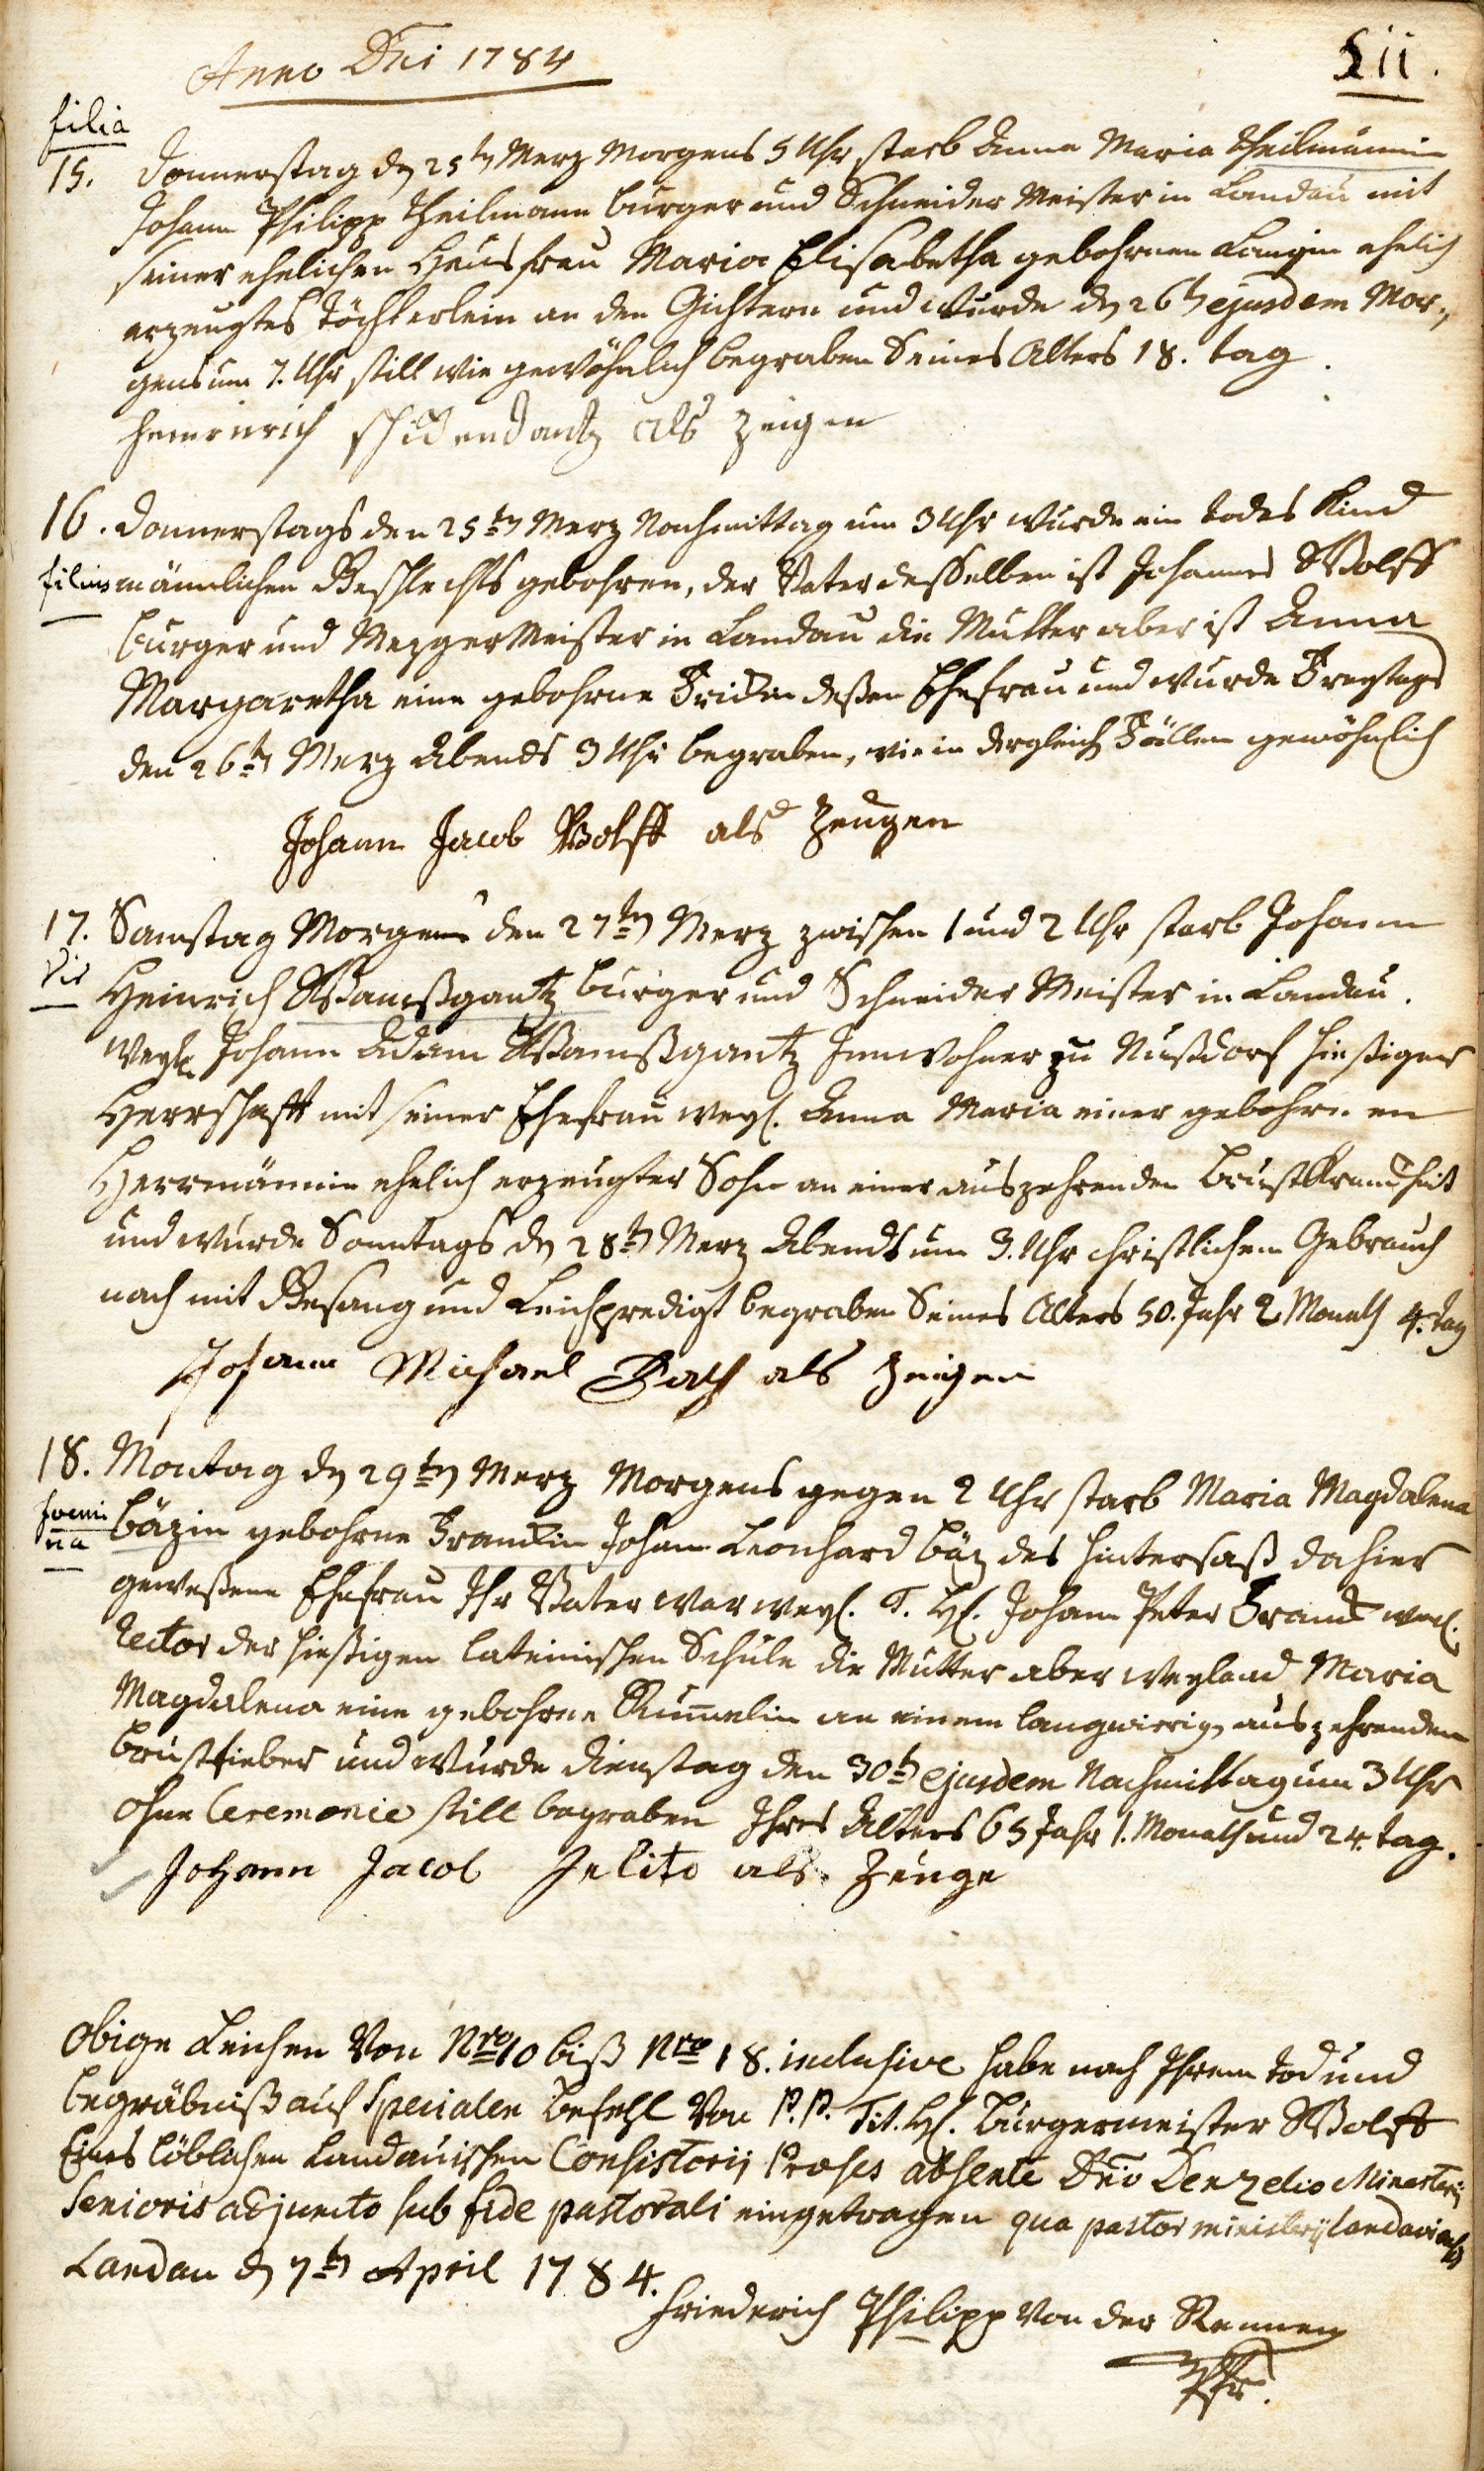 Anno Dni 1784
Lii.
filia
15. Donnerstag dn 25ten Merz Morgens 5 Uhr starb Anna Maria Theilmännin
Johann Philipp Theilmann burger und Schneider Meister in Landau mit
seiner ehelichen Hausfrau Maria Elisabetha gebohrnen Langin ehelich
erzeugtes Töchterlein an den Gichtern und wurde dn 26t ejusdem Mor-
gens um 7. Uhr still wie gewöhnlich begraben Seines Alters 18. tag
als Zeigen
16. Donnerstags den 25ten Merz Nachmittag um 3 Uhr wurde ein todes Kind
filius männlichen Geschlechts gebohren, der Vater desselben ist Johannes Wolff
burger und Mezger Meister in Landau die Mutter aber ist Anna
Margaretha eine gebohrne Frickin deßen Ehefrau und wurde Freytags
den 26ten Merz Abends 3 Uhr begraben, wie in dergleich Fällen gewöhnlich
Johann Jacob Wolff als Zeugen
17. Samstag Morgens den 27ten Merz zwischen 1 und 2 Uhr starb Johann
Vir
Heinrich Wamßgantz burger und Schneider Meister in Landau.
weyl. Johann Adam Wamßgantz Innwohner zu Nußdorf hießiger
Herrschafft mit seiner Ehefrau weyl. Anna Maria einer gebohrnen
Herrmännin ehelich erzeugter Sohn an einer auszehrenden Brustkranckheit
und wurde Sonntags dn 28ten Merz Abends um 3. Uhr christlichem Gebrauch
nach mit Gesang und Leichpredigt begraben Seines Alters 50. Jahr 2 Monath 4. tag
Johann Michael als Zeigen
18. Montag dn 29ten Merz Morgens gegen 2 Uhr starb Maria Magdalena
foemi
na
Bäzin gebohrne Franckin Johann Leonhard Bäz des hintersaß dahier
geweßene Ehefrau Ihr Vater war weyl. T. H. Johann Peter Franck weyl.
rector der hießigen lateinischen Schule die Mutter aber weyland Maria
Magdalena eine gebohrne Kummelin an einem langwierign auszehrenden
brustfieber und wurde Dienstag den 30t ejusdem Nachmittag um 3 Uhr
ohne Ceremonie still begraben Ihres Alters 65 Jahr 1. Monath und 24. tag.
Johann Jacob Jelito als Zeuge
Obige Leichen von Nro 10 biß Nro 18. inclusive habe nach Ihrem tod und
begräbniß auf specialen befehl von P. P. Tit. H. burgermeister Wolff
Eines löblichen Landauischen Consistorij Praeses absente Dno Denzelio Ministerij
Senioris adjuncto sub fide pastorali eingetragen qua pastor ministerij Landaviensis
Landau dn 7ten April 1784.
Friederich Philipp von der Rennen
Pfr.